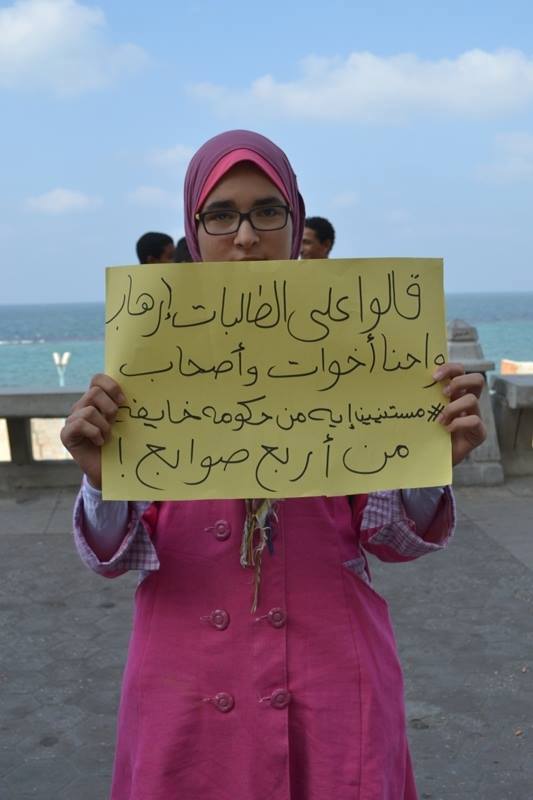 قالوا على الطالبات إرهاب
واحنا أخوات وأصحاب
#مستنيين إيه من حكومه خايفه
من أربع صوابع !